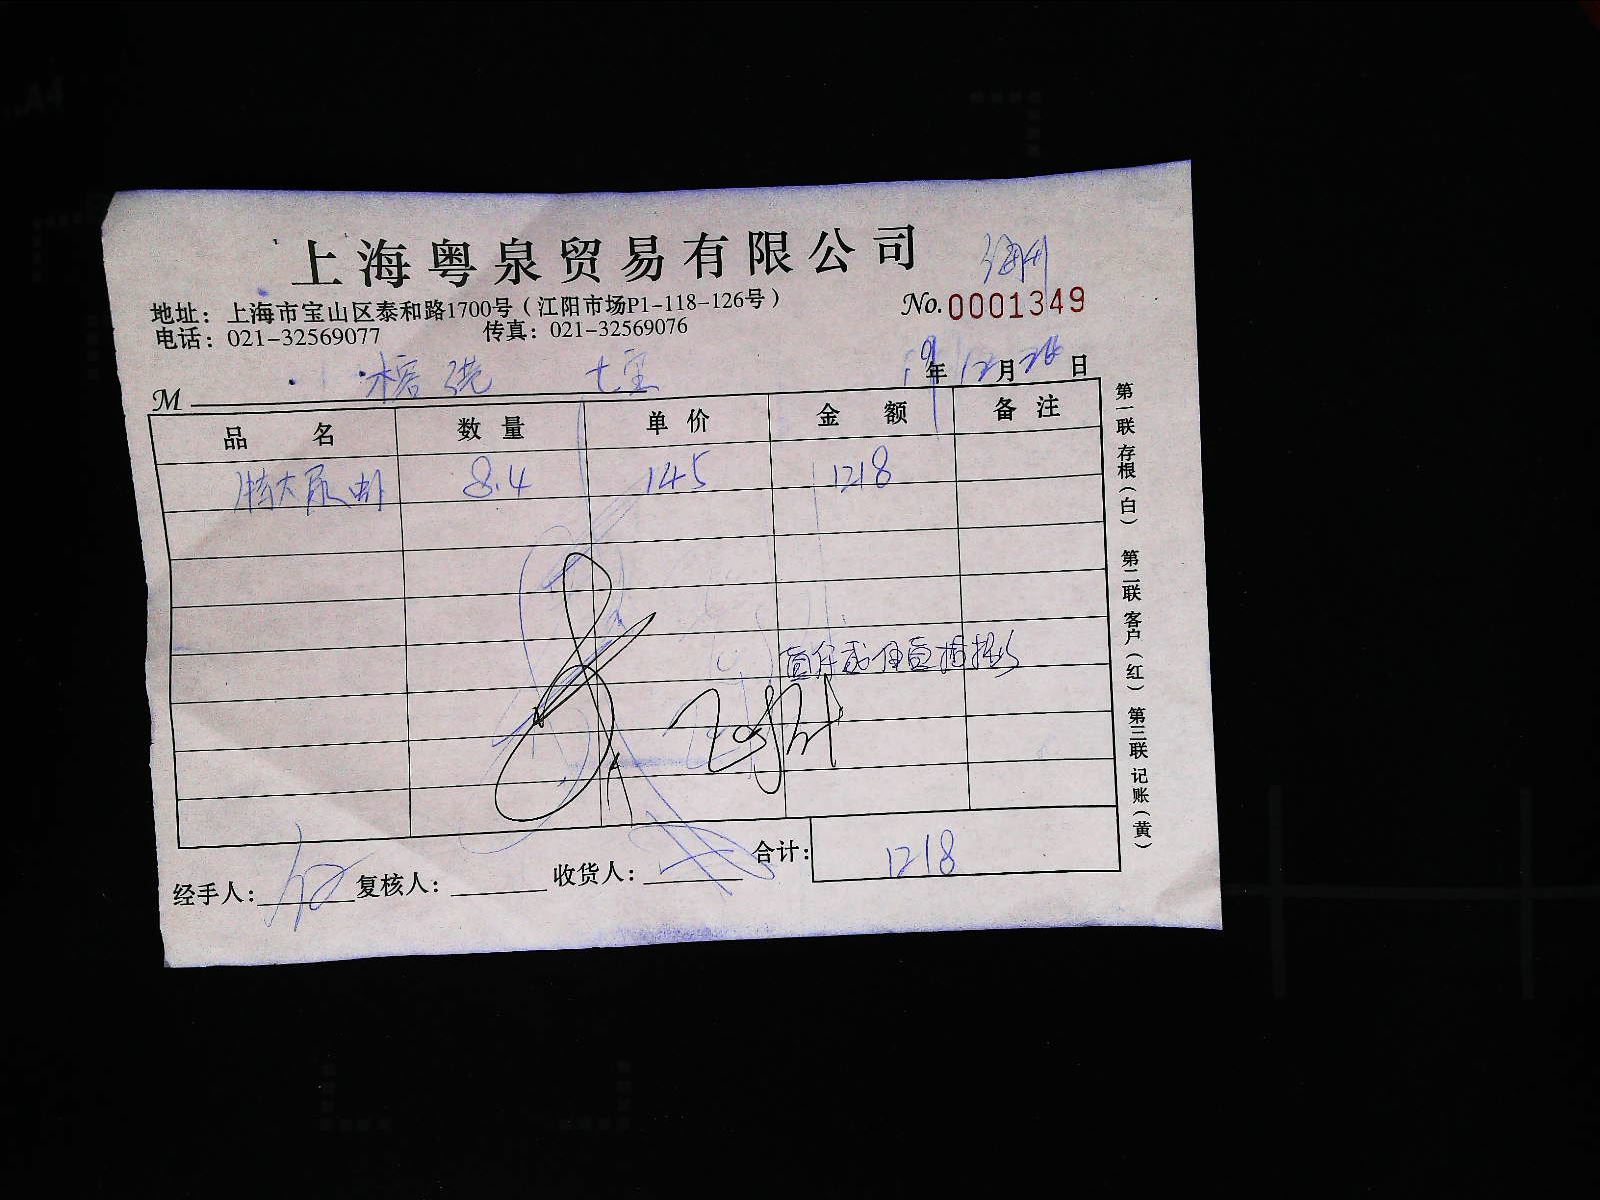 上海粤泉贸易有限公司
No.0001349
地址：上海市宝山区泰和路1700号（江阳市场P1-118-126号）
电话：021-32569077 传真：021-32569076
M 榕港 七宝 19年12月26日
品名 数量 单价 金额 备注
特大尿虾 8.4 145 1218
合计： 1218
经手人： 复核人： 收货人：
第一联 存根（白） 第二联 客户（红） 第三联 记账（黄）